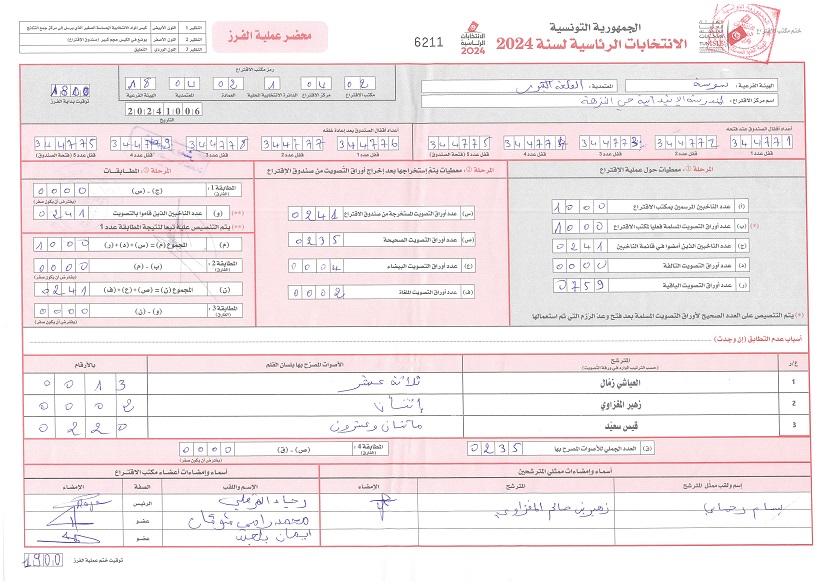 الجمهورية التونسية
الانتخابات الرئاسية لسنة 2024
الانتخابات الرئاسية 2024
6211
محضر عملية الفرز
ختم مكتب الاقتراع
الهيئة الفرعية : سوسة المعتمدية : القلعة الكبرى
اسم مركز الاقتراع : المدرسة الابتدائية حي النزهة
رمز مكتب الاقتراع
02 04 1 02 04 18
مكتب الاقتراع مركز الاقتراع الدائرة الانتخابية المحلية العمادة المعتمدية الهيئة الفرعية
20241006
التاريخ
1800
توقيت بداية الفرز
أعداد أقفال الصندوق عند فتحه
344771 344772 344773 344774 344775
قفل عدد 1 قفل عدد 2 قفل عدد 3 قفل عدد 4 قفل عدد 5 (فتحة الصندوق)
أعداد أقفال الصندوق بعد إعادة غلقه
344776 344777 344778 344779 344775
قفل عدد 1 قفل عدد 2 قفل عدد 3 قفل عدد 4 قفل عدد 5 (فتحة الصندوق)
المرحلة ①: معطيات حول عملية الاقتراع
(أ) عدد الناخبين المرسمين بمكتب الاقتراع 1000
(*) (ب) عدد أوراق التصويت المسلمة فعليا لمكتب الاقتراع 1000
(ج) عدد الناخبين الذين أمضوا في قائمة الناخبين 0241
(د) عدد أوراق التصويت التالفة 0000
(ر) عدد أوراق التصويت الباقية 0759
(*) يتم التنصيص على العدد الصحيح لأوراق التصويت المسلمة بعد فتح وعد الرزم التي تم استعمالها
المرحلة ②: معطيات يتم استخراجها بعد إخراج أوراق التصويت من صندوق الاقتراع
(س) عدد أوراق التصويت المستخرجة من صندوق الاقتراع 0241
(ص) عدد أوراق التصويت الصحيحة 0235
(ع) عدد أوراق التصويت البيضاء 0004
(ف) عدد أوراق التصويت الملغاة 0002
المرحلة ③: المطابقات
المطابقة 1: (الفارق) (ج) - (س) 0000
(يفترض أن يكون صفر)
(**) (و) عدد الناخبين الذين قاموا بالتصويت 0241
(**) يتم التنصيص عليه تبعا لنتيجة المطابقة عدد 1
(م) المجموع (م) = (س) + (د) + (ر) 1000
المطابقة 2: (الفارق) (ب) - (م) 0000
(يفترض أن يكون صفر)
(ن) المجموع (ن) = (ص) + (ع) + (ف) 0241
المطابقة 3: (الفارق) (و) - (ن)
(يفترض أن يكون صفر)
أسباب عدم التطابق (إن وجدت)
ع/ر المترشح (حسب الترتيب الوارد في ورقة التصويت) الأصوات المصرح بها بلسان القلم بالأرقام
1 العياشي زمال ثلاثة عشر 0013
2 زهير المغزاوي إثنان 0002
3 قيس سعيّد مائتان وعشرون 0220
(ق) العدد الجملي للأصوات المصرح بها 0235
المطابقة 4: (الفارق) (ص) - (ق) 0000
(يفترض أن يكون صفر)
أسماء وإمضاءات ممثلي المترشحين
أسماء وإمضاءات أعضاء مكتب الاقتراع
إسم ولقب ممثل المترشح المترشح الإمضاء
الإسم واللقب الصفة الإمضاء
بسام رحماني زهير بن صالح المغزاوي
الرئيس
عضو
عضو
توقيت ختم عملية الفرز 1900